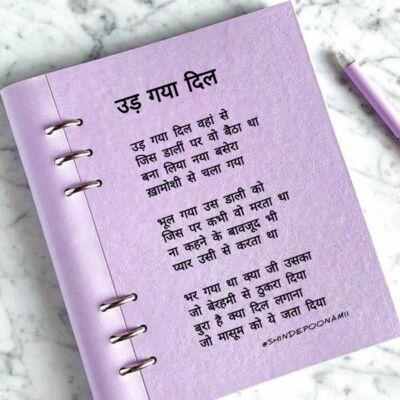 उड़ गया दिल
उड़ गया दिल वहां से
जिस डालीं पर वो बैठा था
बना लिया नया बसेरा
ख़ामोशी से चला गया
भूल गया उस डाली को
जिस पर कभी वो मरता था
ना कहने के बावजूद भी
प्यार उसी से करता था
भर गया था क्या जी उसका
जो बेरहमी से ठुकरा दिया
बुरा है क्या दिल लगाना
जो मासूम को ये जता दिया
@SHINDEPOONAM11